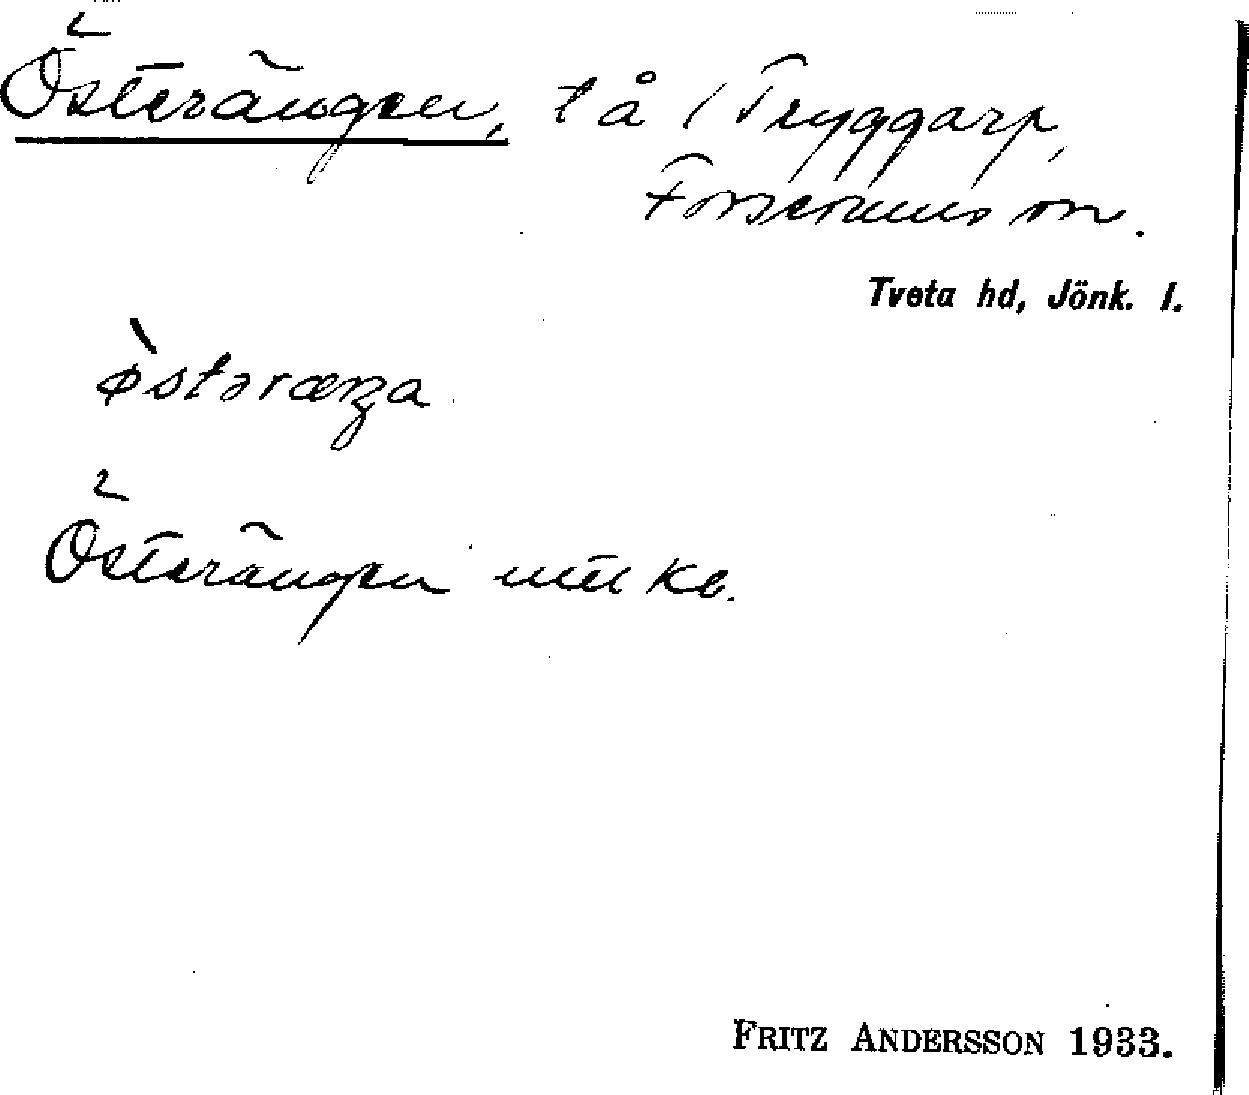 Österängen, tå i Tryggarp,
Forserums sn.
Tveta hd, Jönk. l.
ø̀stəræŋa
Österängen
FRITZ ANDERSSON 1933.